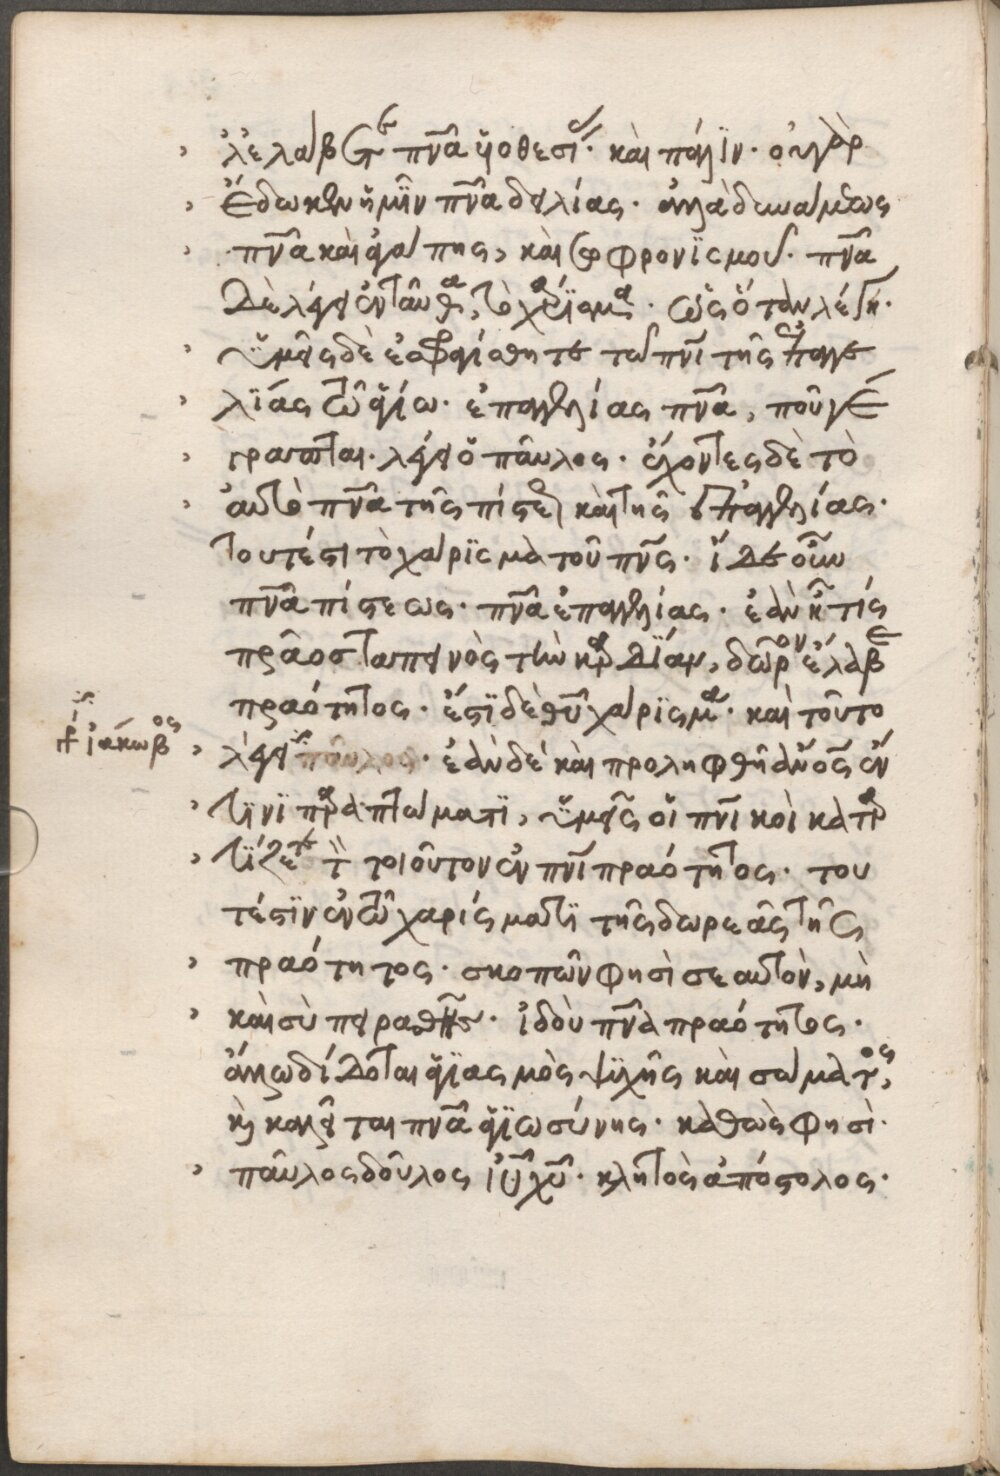 ἐλάβετε πνᾶ υἱοθεσίας· καὶ πάλϊν· οὐ γὰρ
ἔδωκεν ἡμῖν πνᾶ δειλίας· ἀλλὰ δυνάμεως
πνᾶ καὶ ἀγάπης, καὶ σωφρονϊσμοῦ· πνᾶ
δὲ λέγει ἐνταῦθα, τὸ χάρϊσμα· ὡς ὅταν λέγη·
ὑμεῖς δὲ ἐσφραγίσθητε τῶ πνι τῆς ἐπαγγε
λίας τῶ ἁγίω· ἐπαγγελίας πνᾶ, ποῦ γέ
γραπται· λέγει ὁ παῦλος· ἔχοντες δὲ τὸ
ἀυτὸ πνᾶ τῆς πίστεως καὶ τῆς ἐπαγγελίας·
τουτέστι τὸ χάρϊσμα τοῦ πνς· ἴδε οὖν
πνᾶ πίστεως· πνᾶ ἐπαγγελίας· ἐὰν ᾖ τίς
πρᾶος ταπεινὸς τὴν καρδΐαν, δῶρον ἔλαβε
πραότητος· ἔστϊ δὲ θυ χάρϊσμα· καὶ τοῦτο
λέγει παῦλος· ἐὰν δὲ καὶ προληφθῆ ἀνος ἔν
τϊνϊ παραπτώματϊ, ὑμεῖς οἱ πνικοὶ καταρ
τΐζετε τὸν τοιοῦτον ἐν πνι πραότητος· του
τέστϊν ἐν τῶ χαρίσματϊ τῆς δωρεᾶς τῆς
πραότητος· σκοπῶν φησὶ σεαυτὸν, μὴ
καὶ σὺ πειρασθῆς· ἰδοὺ πνᾶ πραότητος·
ἄλλω δίδοται ἁγϊασμὸς ψϋχῆς καὶ σώματος,
καὶ καλεῖται πνᾶ ἁγϊωσύνης· καθὼς φησὶ·
παῦλος δοῦλος ιυ χυ· κλητὸς ἀπόστολος·
ἰάκωβος